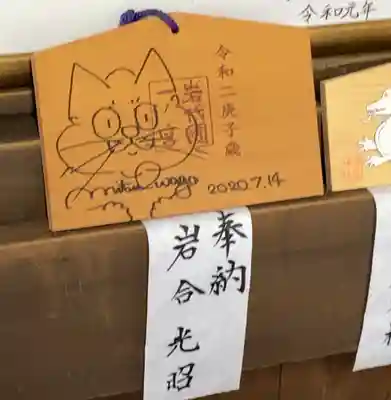 令和元年
令和二庚子歳
2020.7.14
奉納
岩合光昭